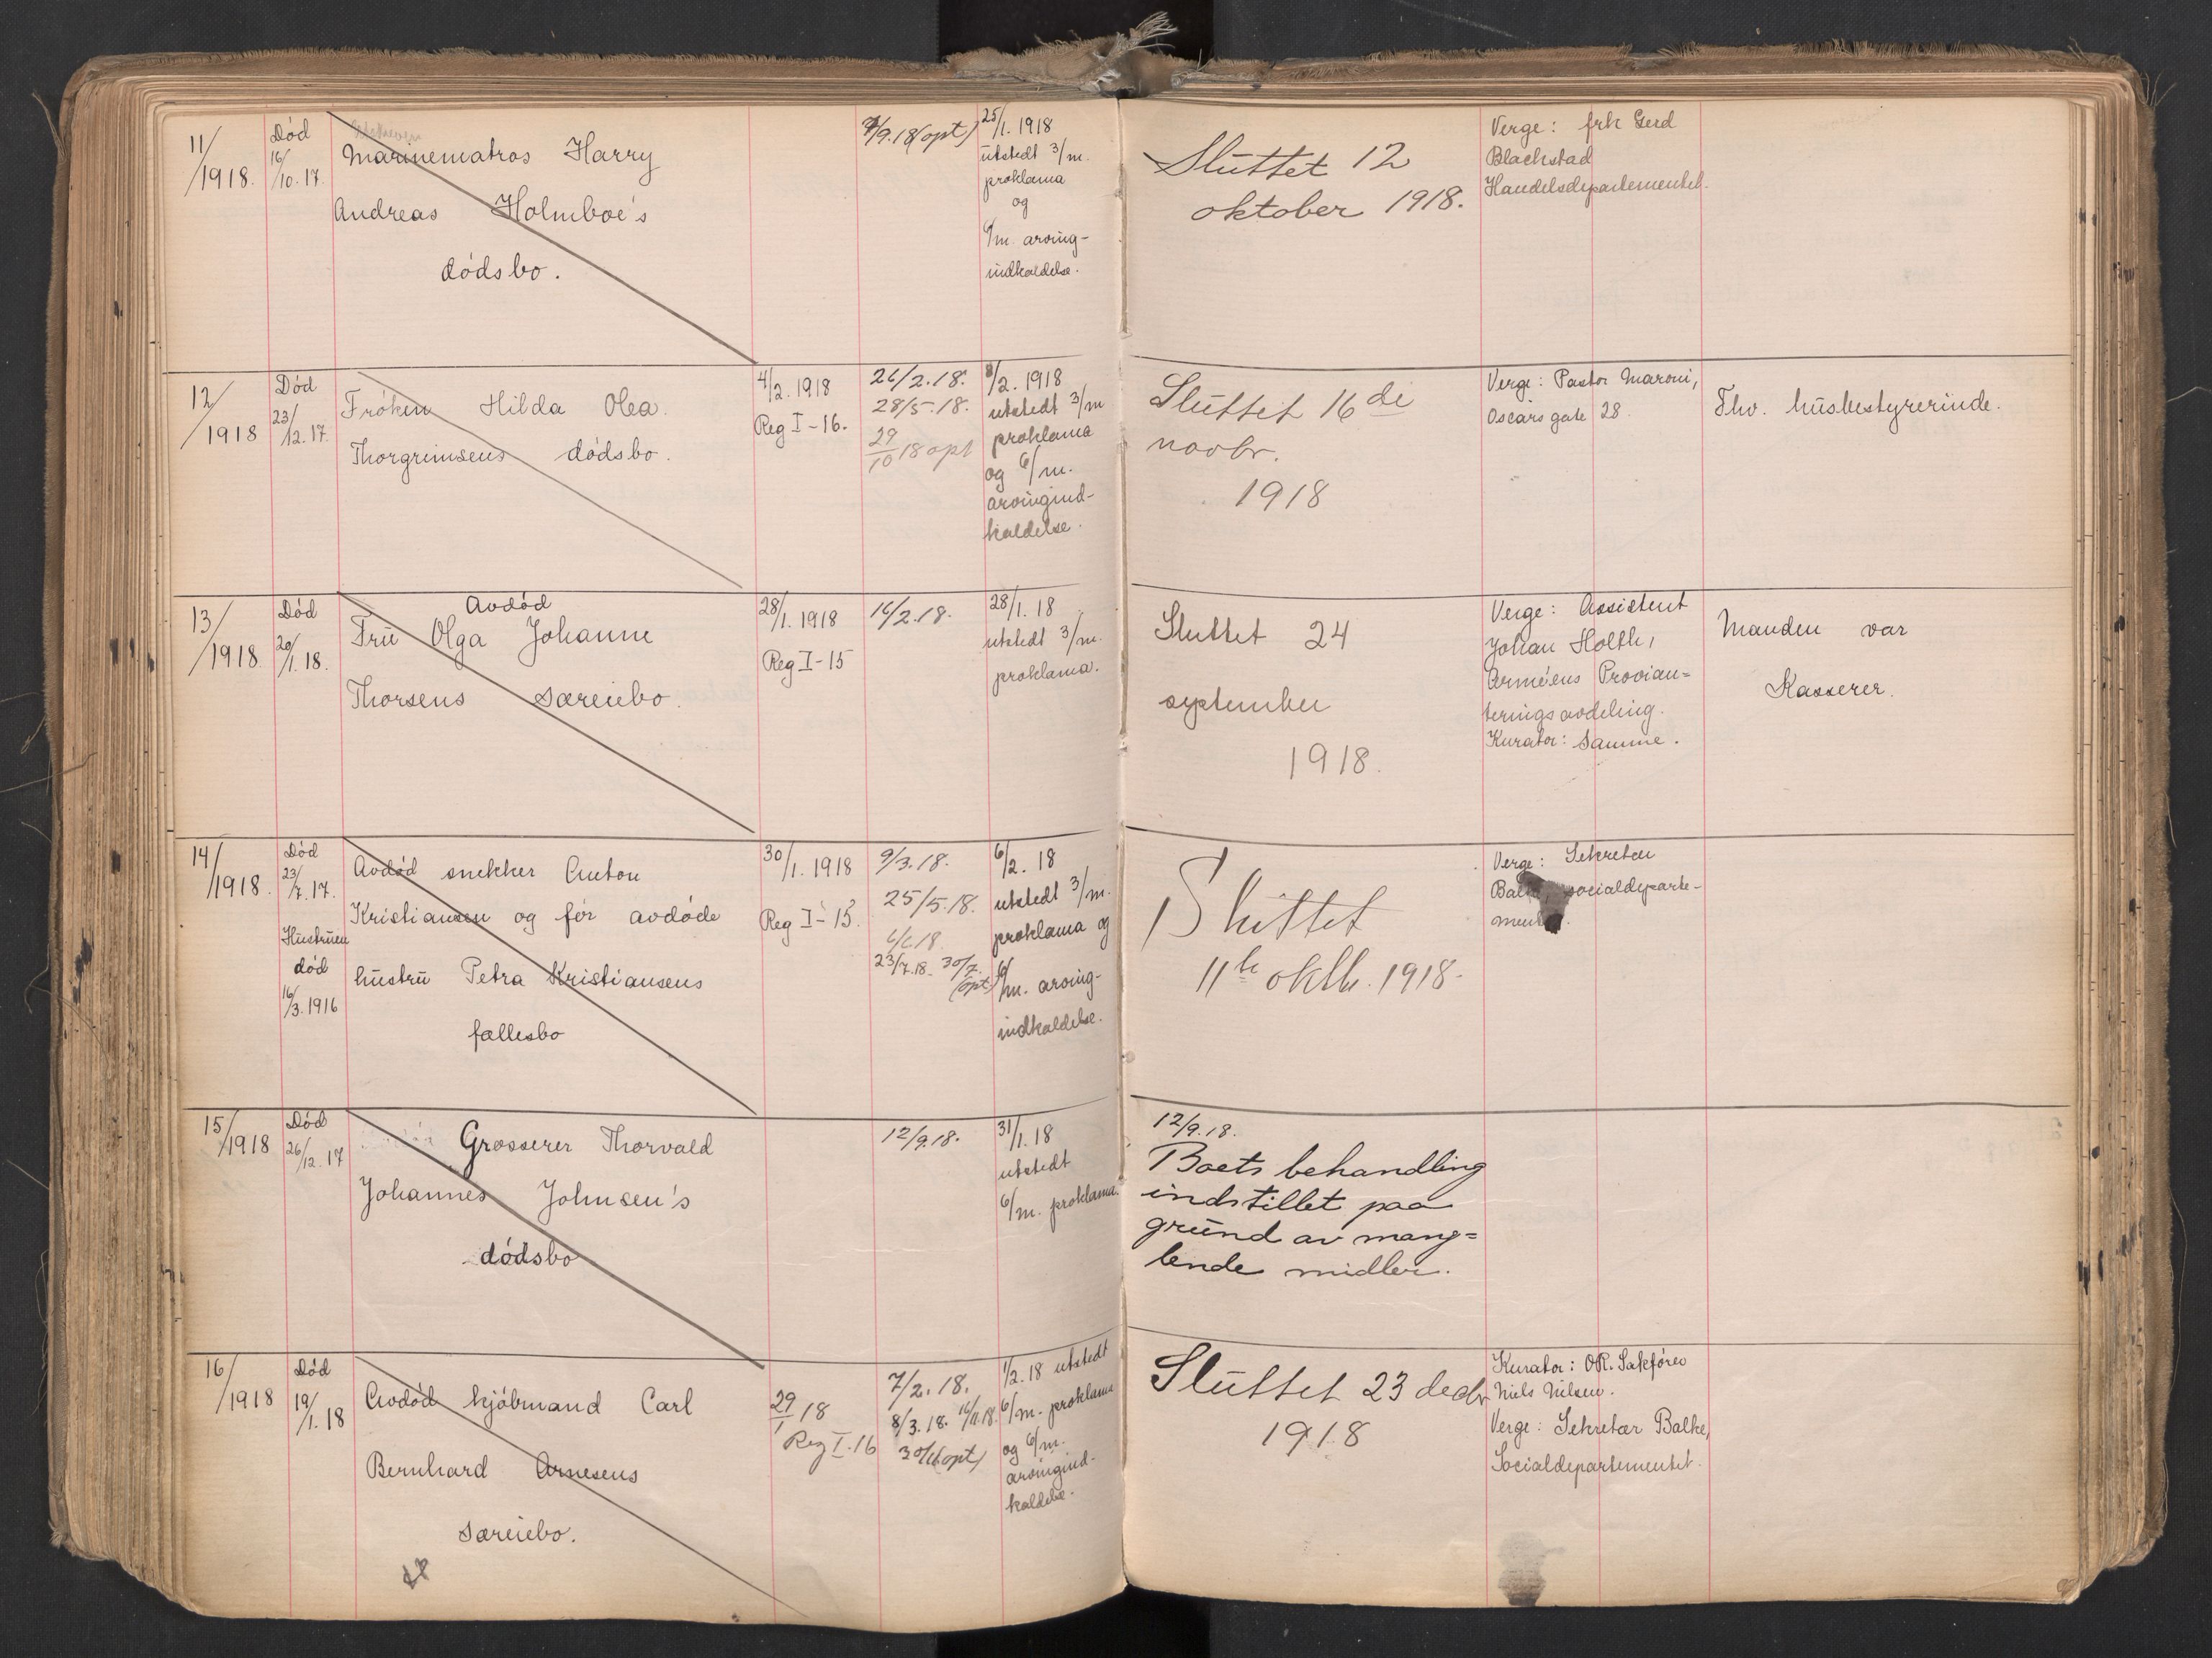 11/1918.
Død
16/10.17.
Marinematros Harry
Andreas Holmboe's
dødsbo.
7/9.18 (opt)
25/1. 1918
utstedt 3/m.
proklama
og
6/m. arving-
indkaldelse.
Sluttet 12
oktober 1918.
Verge: frk Gerd
Blachstad
Handelsdepartementet.
12/1918
Død
23/12.17.
Frøken Hilda Olea
Thorgrimsens dødsbo.
4/2. 1918
Reg I-16.
26/2.18.
28/5.18.
29/10 18 opt
8/2. 1918
utstedt 3/m
proklama
og 6/m.
arvingind-
kaldelse.
Sluttet 16 de
novbr.
1918
Verge: Pastor Maroni,
Oscars gate 28.
Fhv. husbestyrerinde.
13/1918
Død
20/1.18.
Avdød
Fru Olga Johanne
Thorsens særeiebo.
28/1. 1918
Reg I-15
16/2.18.
28/1. 18
utstedt 3/m.
proklama.
Sluttet 24
september
1918.
Verge: Assistent
Johan Holth,
Arméens Provian=
teringsavdeling.
Kurator: Samme.
Manden var
Kasserer.
14/1918.
Død
23/7.17.
Hustruen
død
16/3.1916
Avdød snekker Anton
Kristiansen og før avdøde
hustru Petra Kristiansens
fællesbo
30/1. 1918
Reg I-15.
9/3.18.
25/5.18.
6/6.18.
23/7.18. 30/7.
(opt)
6/2. 18
utstedt 3/m.
proklama og
6/m. arving-
indkaldelse.
Sluttet
11te oktbr. 1918.
Verge: Sekretær
socialdeparte-
15/1918
Død
26/12.17
Grosserer Thorvald
Johannes Johnsen's
dødsbo
12/9.18.
31/1.18
utstedt
6/m. proklama.
12/9.18.
Boets behandling
indstillet paa
grund av mang=
lende midler.
16/1918
Død
19/1.18
Avdød kjøbmand Carl
Bernhard Arnesens
særeiebo.
29/1 18
Reg I.16
7/2. 18.
8/3.18. 16/11.18.
30/11 (opt)
1/2.18 utstedt
6/m. proklama
og 6/m.
arvingind-
kaldelse.
Sluttet 23 decbr
1918
Kurator: OR. Sakfører
Niels Nilsen.
Verge: Sekretær Balke,
Socialdepartementet.